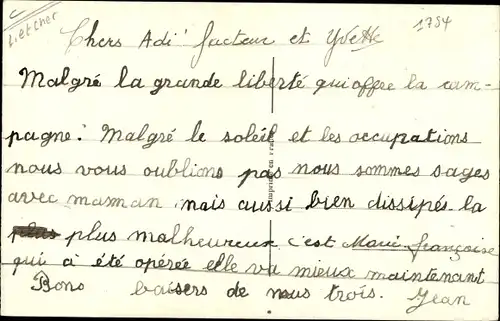 Loir et Cher
1754
Chers Adi' facteur et Yvette
Malgré la grande liberté qui offre la cam-
pagne. Malgré le soleil et les occupations
nous vous oublions pas nous sommes sages
avec maman mais aussi bien dissipés la
plus plus malheureux c'est Marie-françoise
qui a été opérée elle va mieux maintenant
Bons baisers de nous trois. Jean